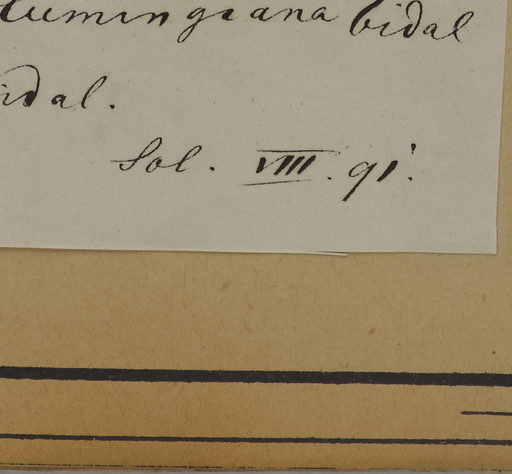 cumingiana Vidal
idal.
Sol. VIII. 91.